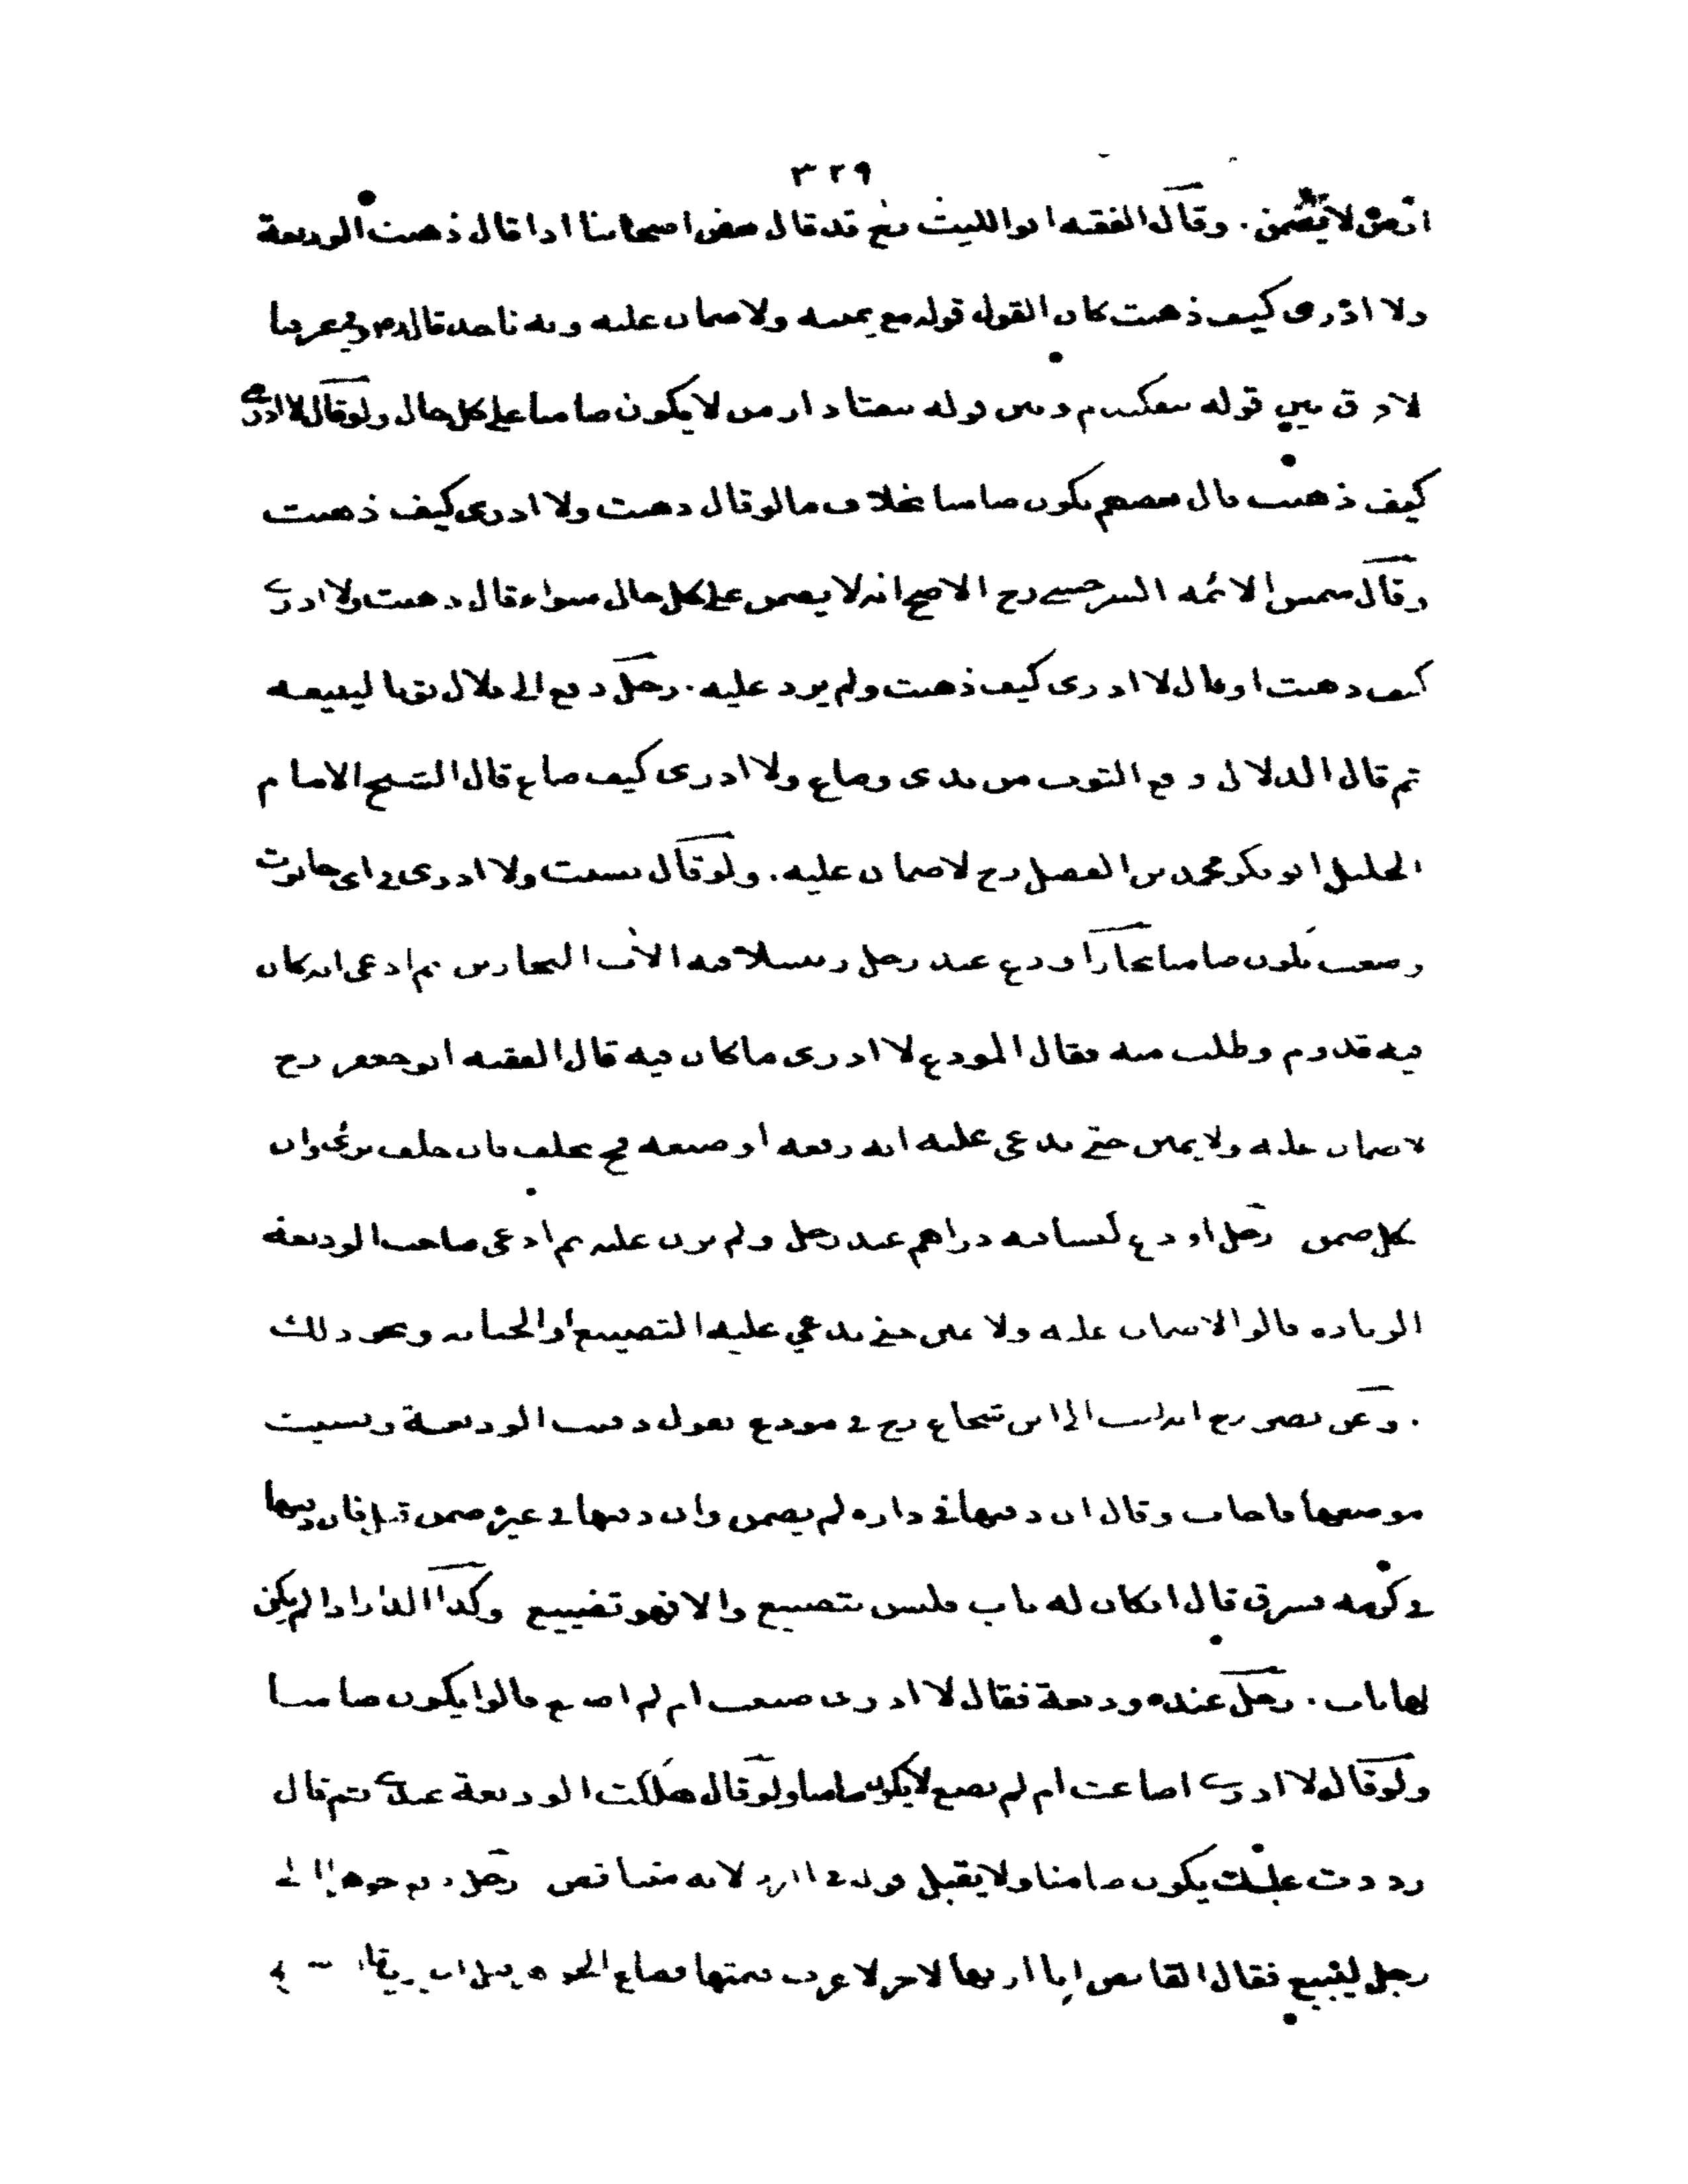 ٣٢٩
لا يضمن . وقال الفقيه ابو الليث رح قد قال بعض اصحابنا اذا قال ذهبت الوديعة
ولا ادرى كيف ذهبت كان القول قوله مع يمينه ولا ضمان عليه وبه ناخذ قال رح وفي عرفنا
لا فرق بين قوله وبين قوله از من لا يكون ضامنا على كل حال ولو قال لا ادرى
كيف ذهبت قال بعضهم يكون ضامنا بخلاف ما لو قال ذهبت ولا ادرى كيف ذهبت
وقال شمس الائمه السرخسي رح الاصح انه لا يضمن على كل حال سواء قال ذهبت ولا ادرى
كيف ذهبت او قال لا ادرى كيف ذهبت ولم يزد عليه . رجل دفع الى دلال ثوبا ليبيعه
ثم قال الدلال وقع الثوب من يدى وضاع ولا ادرى كيف ضاع قال الشيخ الامام
الجليل ابو بكر محمد بن الفضل رح لا ضمان عليه . ولو قال نسيت ولا ادرى في اى حانوت
وضعت يكون ضامنا نجار اودع عند رجل زنبيلا فيه الات النجارين ثم ادعى انه كان
فيه قدوم وطلب منه فقال المودع لا ادرى ما كان فيه قال الفقيه ابو جعفر رح
لا ضمان عليه ولا يمين حتى يدعى عليه انه رفعه او ضيعه فح يحلف فان حلف برئ وان
نكل ضمن رجل اودع كيسا فيه دراهم عند رجل ولم يزن عليه ثم ادعى صاحب الوديعة
الزيادة قالوا لا ضمان عليه ولا يمين حتى يدعي عليه التضييع او الخيانه ونحو ذلك
. وعن نصير رح انه كتب الى ابن شجاع رح في مودع يقول دفنت الوديعة ونسيت
موضعها فاجاب وقال ان دفنها في داره لم يضمن وان دفنها في غيره ضمن قيل فان دفنها
في كرمه فسرق قال ان كان له باب فليس بتضييع والا فهو تضييع وكذا الدار اذا لم يكن
لها باب . رجل عنده وديعة فقال لا ادرى ضيعت ام لم اضيع قالوا يكون ضامنا
ولو قال لا ادرى اضاعت ام لم تضع لا يكون ضامنا ولو قال هلكت الوديعة عندى ثم قال
رددت عليك يكون ضامنا ولا يقبل قوله في الرد لانه متناقض رجل دفع جوهرا الى
رجل ليبيع فقال القابض انا اريها لاعرف قيمتها فضاع الجوهر قبل ان